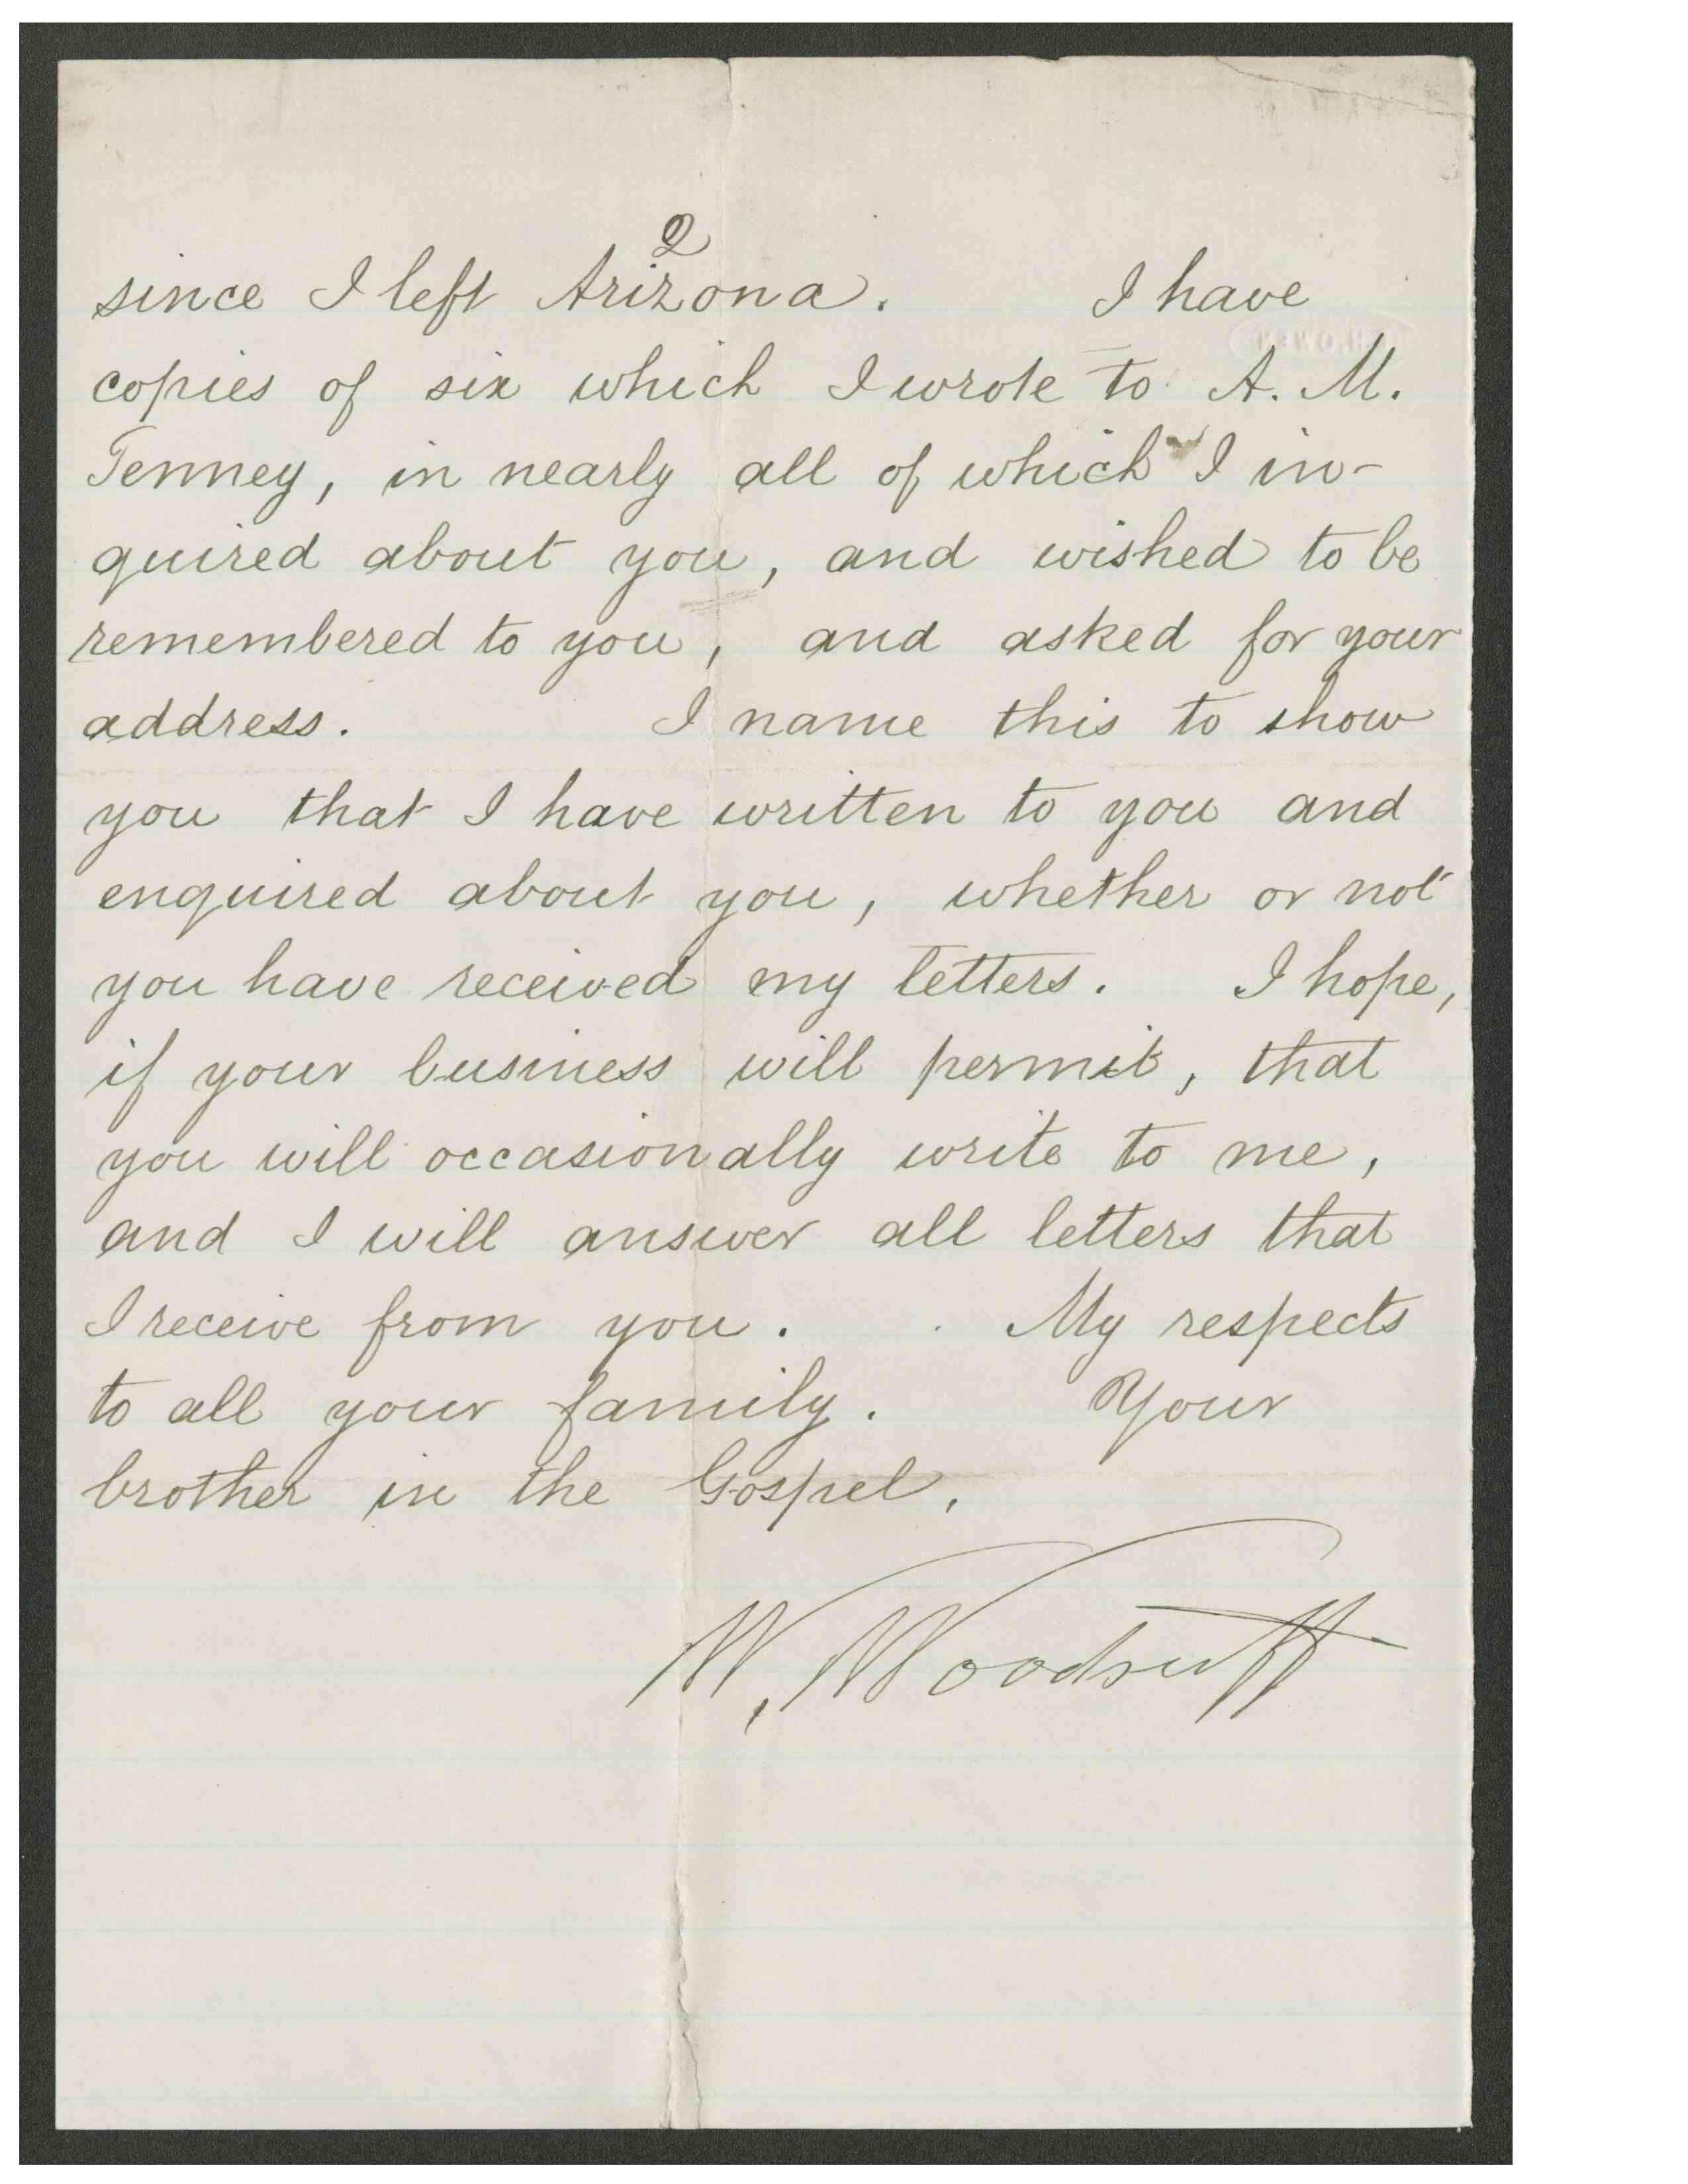 2
since I left Arizona. I have
copies of six which I wrote to A. M.
Tenney, in nearly all of which I in-
quired about you, and wished to be
remembered to you, and asked for your
address. I name this to show
you that I have written to you and
enquired about you, whether or not
you have received my letters. I hope,
if your business will permit, that
you will occasionally write to me,
and I will answer all letters that
I receive from you. My respects
to all your family. Your
brother in the Gospel,
W. Woodruff